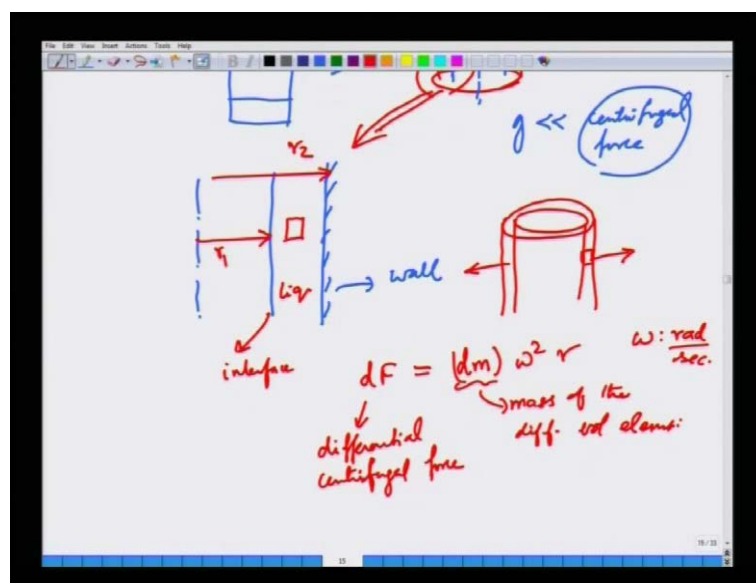 File Edit View Insert Actions Tools Help
g << centrifugal
force
r2
r1
liq
wall
interface
dF = (dm) ω² r
ω : rad
sec.
mass of the
diff. vol element.
differential
centrifugal force
15